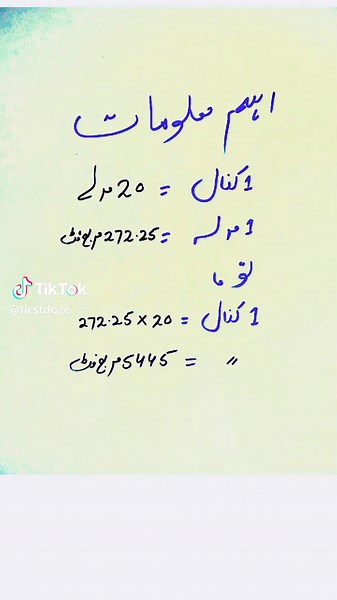 اہم معلومات
1 کنال = 20 مرلے
1 مرلہ = 272.25 مربع فٹ
تو ما
1 کنال = 272.25 x 20
〃 = 5445 مربع فٹ
TikTok
@firstdoze